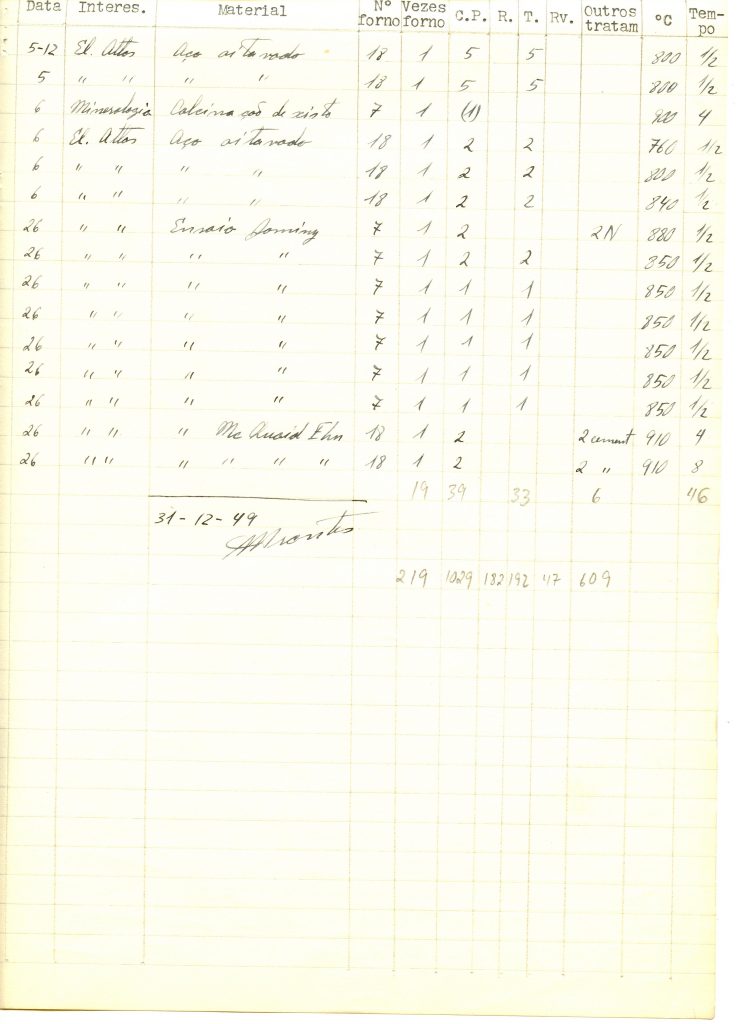 Data Interes. Material Nº forno Vezes forno C.P. R. T. Rv. Outros tratam ºC Tempo
5-12 El. Attos Aço oitavado 18 1 5 5 800 1/2
5 " " " " 18 1 5 5 800 1/2
6 Mineralogia Calcinação de xisto 7 1 (1) 900 4
6 El. Attos Aço oitavado 18 1 2 2 760 1/2
6 " " " " 18 1 2 2 800 1/2
6 " " " " 18 1 2 2 840 1/2
26 " " Ensaio Jominy 7 1 2 2N 880 1/2
26 " " " " 7 1 2 2 850 1/2
26 " " " " 7 1 1 1 850 1/2
26 " " " " 7 1 1 1 850 1/2
26 " " " " 7 1 1 1 850 1/2
26 " " " " 7 1 1 1 850 1/2
26 " " " " 7 1 1 1 850 1/2
26 " " " Mc Quaid Ehn 18 1 2 2 cement 910 4
26 " " " " " " 18 1 2 2 " 910 8
19 39 33 6 46
31-12-49
219 1029 182 192 47 609